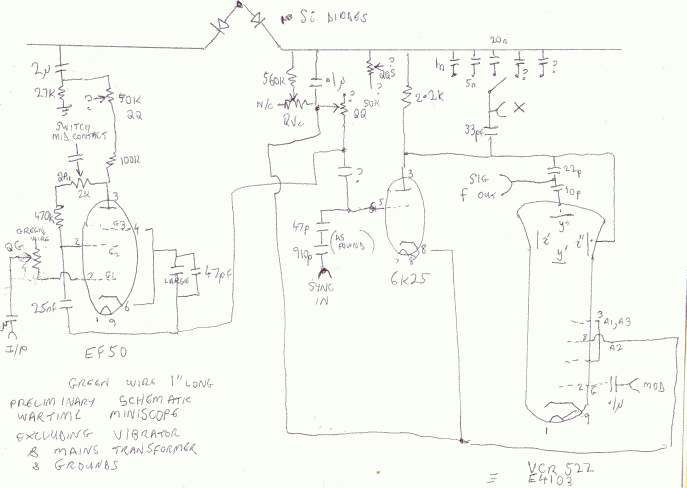 Si DIODES
20n
2µ
27K
50K
2Q
?
SWITCH
MID CONTACT
100K
2A1
2K
470K
GREEN
WIRE
2G
25nF
I/P
3
G3
4
G2
2
G1
2
6
1
9
EF50
LARGE
47pF
560K
.1µ
N/C
RVC
2Q
?
2Q5
?
50K
2.2K
?
47p
910p
(AS
FOUND)
SYNC
IN
3
5
7
8
6K25
1n
5n
?
?
X
33pF
SIG
F OUT
22p
10p
y"
x'
y'
x"
3
A1, A3
8
A2
2
6
.1µ
MOD
1
9
GREEN WIRE 1" LONG
PRELIMINARY SCHEMATIC
WARTIME MINISCOPE
EXCLUDING VIBRATOR
& MAINS TRANSFORMER
& GROUNDS
VCR 522
= E4103